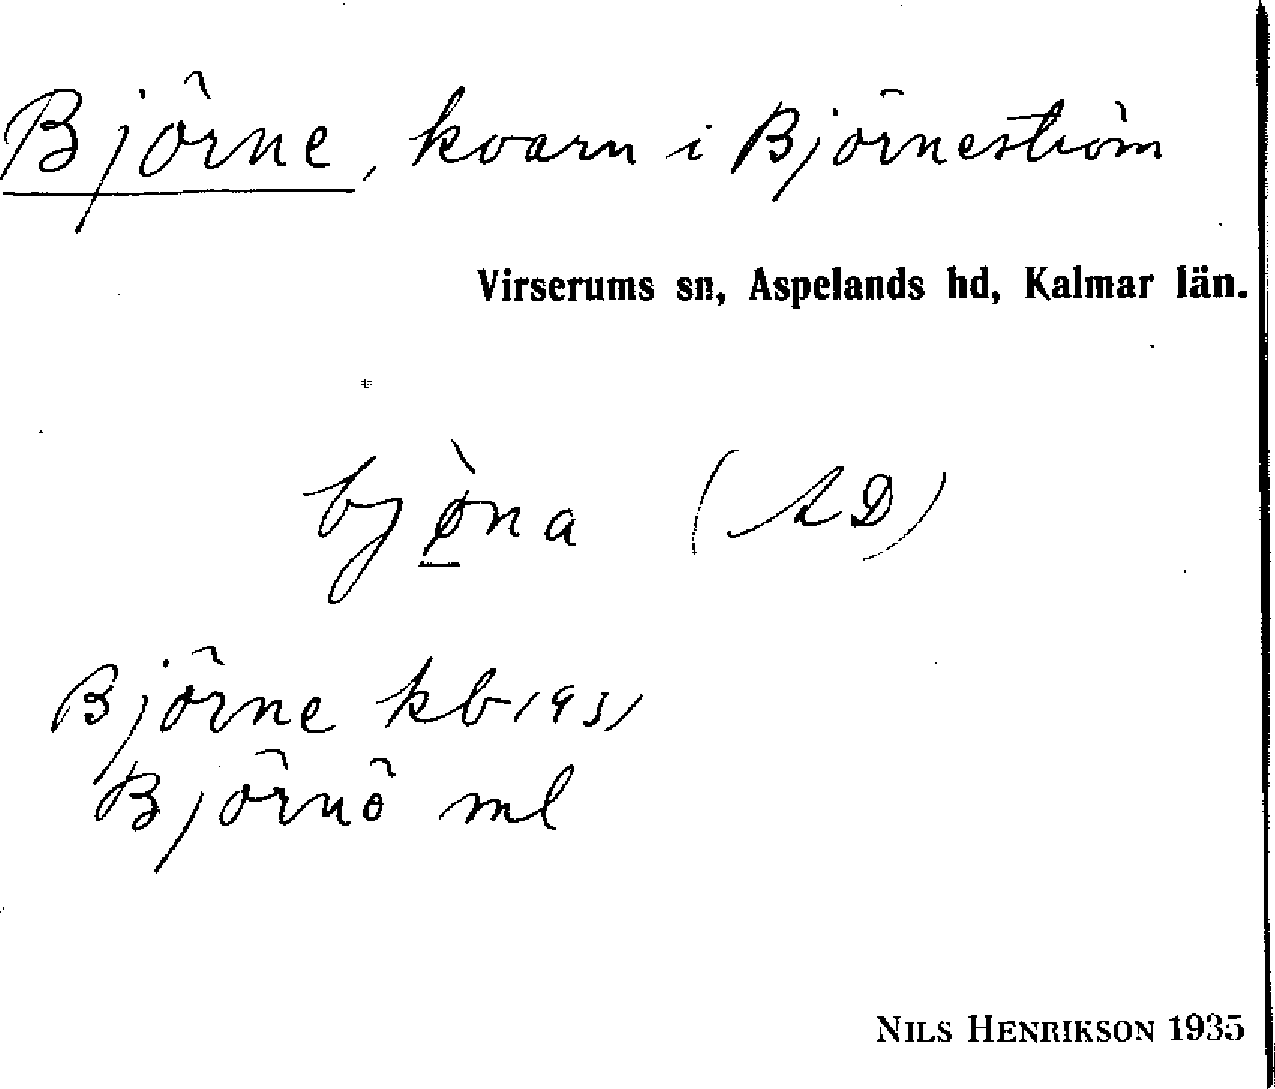 Björne, kvarn i Björneström
Virserums sn, Aspelands hd, Kalmar län.
bjø̀na (AD)
Björne kb 1931
Björnö ml
NILS HENRIKSON 1935